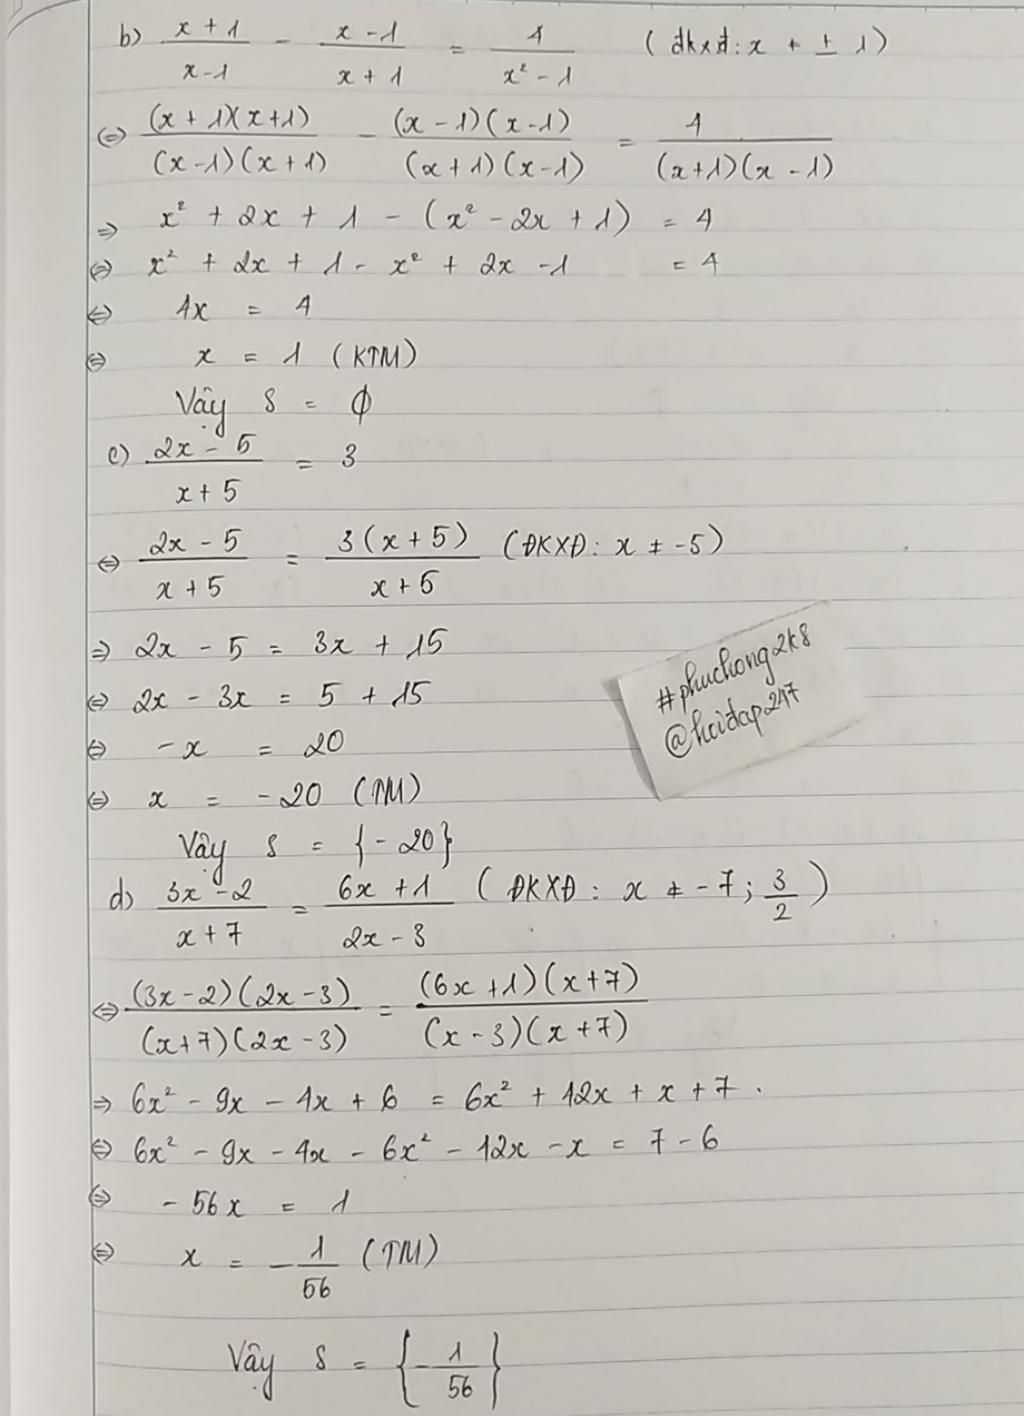 b) (x + 1)/(x - 1) - (x - 1)/(x + 1) = 4/(x² - 1) (đkxđ: x ≠ ± 1)
⇔ (x + 1)(x + 1)/(x - 1)(x + 1) - (x - 1)(x - 1)/(x + 1)(x - 1) = 4/(x + 1)(x - 1)
⇒ x² + 2x + 1 - (x² - 2x + 1) = 4
⇔ x² + 2x + 1 - x² + 2x - 1 = 4
⇔ 4x = 4
⇔ x = 1 (KTM)
Vậy S = ∅
c) (2x - 5)/(x + 5) = 3
⇔ (2x - 5)/(x + 5) = 3(x + 5)/(x + 5) (ĐKXĐ: x ≠ -5)
⇒ 2x - 5 = 3x + 15
⇔ 2x - 3x = 5 + 15
⇔ -x = 20
⇔ x = -20 (TM)
Vậy S = {-20}
#phuchong2k8
@hoidap247
d) (3x - 2)/(x + 7) = (6x + 1)/(2x - 3) (ĐKXĐ: x ≠ -7; 3/2)
⇔ (3x - 2)(2x - 3)/(x + 7)(2x - 3) = (6x + 1)(x + 7)/(x - 3)(x + 7)
⇒ 6x² - 9x - 4x + 6 = 6x² + 42x + x + 7.
⇔ 6x² - 9x - 4x - 6x² - 42x - x = 7 - 6
⇔ -56x = 1
⇔ x = -1/56 (TM)
Vậy S = {-1/56}